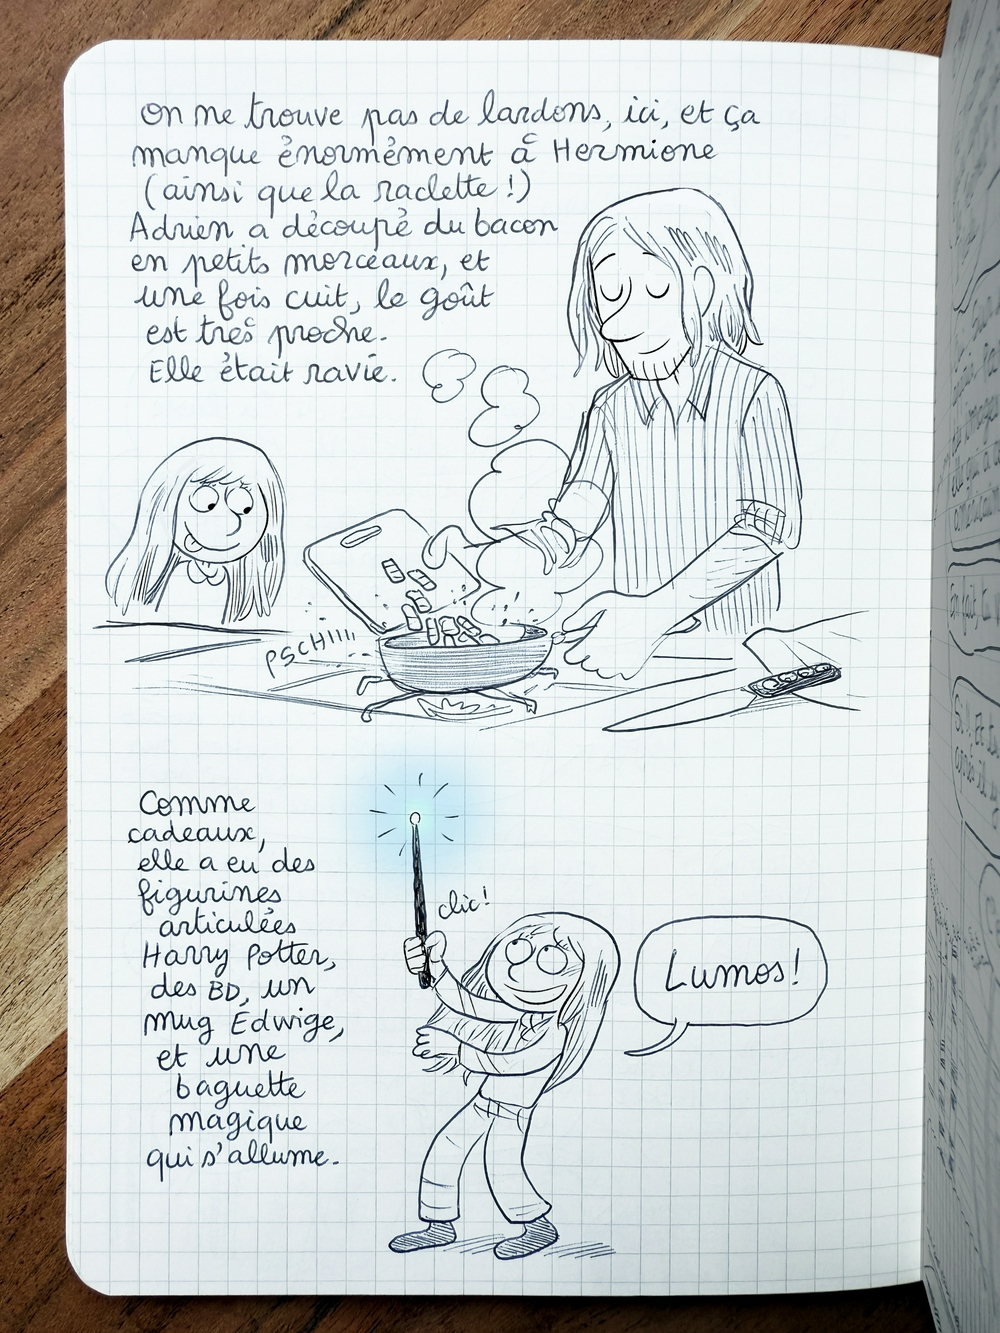 On ne trouve pas de lardons, ici, et ça
manque énormément à Hermione
(ainsi que la raclette !)
Adrien a découpé du bacon
en petits morceaux, et
une fois cuit, le goût
est très proche.
Elle était ravie.
PSCHIIII
Comme
cadeaux,
elle a eu des
figurines
articulées
Harry Potter,
des BD, un
mug Edwige,
et une
baguette
magique
qui s'allume.
clic!
Lumos!